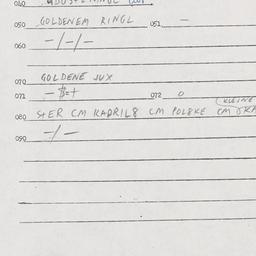 040
050 GOLDENEM RINGL 051 —
060 -/-/-
070 GOLDENE JUX
071 072 0
KLEINE
080 STER CM KADRIL8 CM POLBKE CM
090 -/-